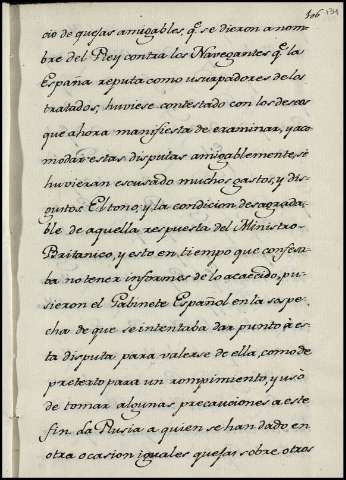 106 131
cio de quejas amigables, q.e se dieron a nom-
bre del Rey contra los Navegantes q.e la
España reputa como usurpadores de los
tratados; huviese contestado con los deseos
que ahora manifiesta de examinar, y aco
modar estas disputas amigablemente, se
huvieran escusado muchos gastos, y dis-
gustos. El tono, y la condicion desagrada-
ble de aquella respuesta del Ministro
Britanico, y esto en tiempo que confesa-
ba no tener informes de lo acaecido, pu-
sieron el Gabinete Español en la sospe-
cha de que se intentaba dar punto à es-
ta disputa para valerse de ella, como de
pretexto para un rompimiento, y usò
de tomar algunas precauciones a este
fin. La Rusia a quien se han dado en
otra ocasion iguales quejas sobre otros